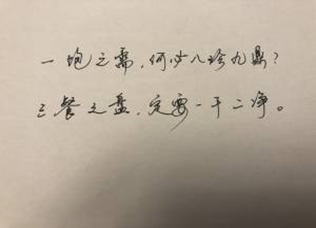 一饱之需，何必八珍九鼎？
三餐之盘，定要一干二净。